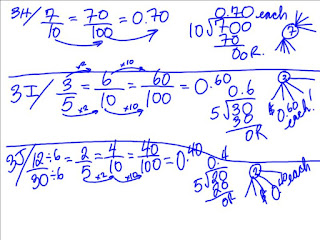 3H/ 7/10 = 70/100 = 0.70
0.70 each
10√700
70
00R.
7
3I/ 3/5 = 6/10 = 60/100 = 0.60
×2 ×10
×2 ×10
0.6
5√30
30
0R
3
$0.60 each!
3J/ 12÷6/30÷6 = 2/5 = 4/10 = 40/100 = 0.40
×2 ×10
0.4
5√20
20
0R
2
$0.40 each